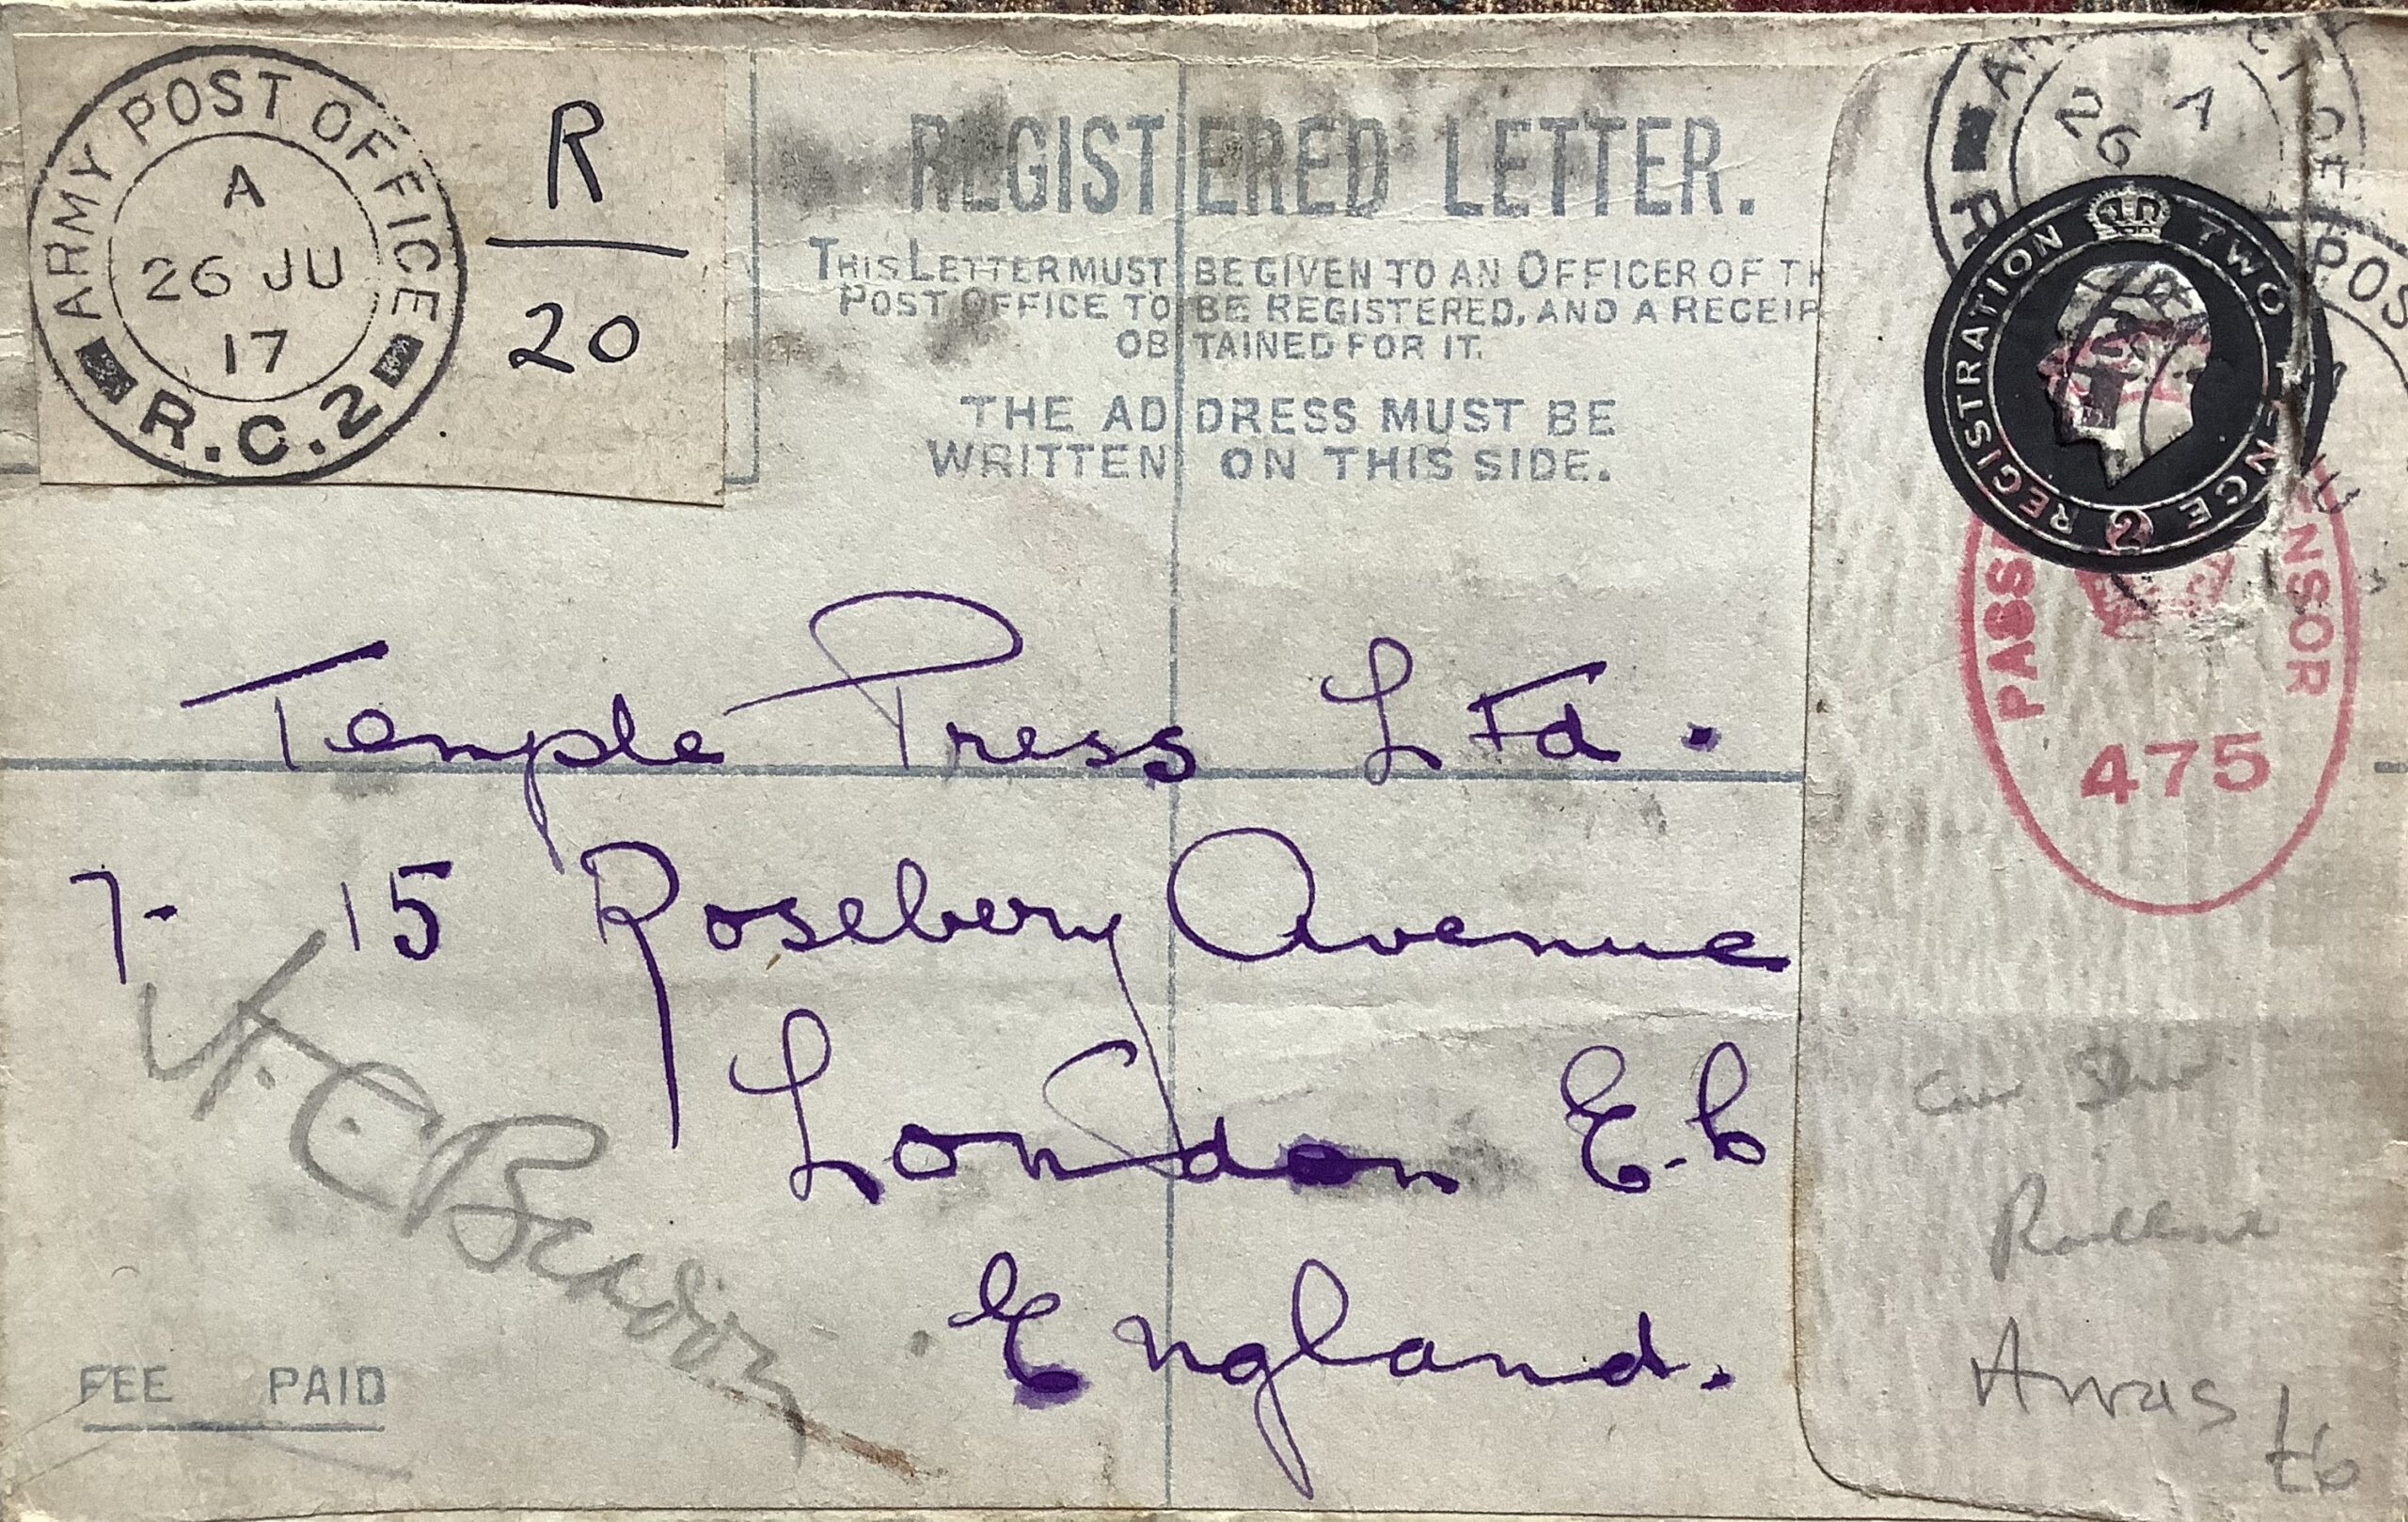 ARMY POST OFFICE
A
26 JU
17
R.C.2
R
20
REGISTERED LETTER.
THIS LETTER MUST BE GIVEN TO AN OFFICER OF TH
POST OFFICE TO BE REGISTERED, AND A RECEIP
OBTAINED FOR IT.
THE ADDRESS MUST BE
WRITTEN ON THIS SIDE.
A
26
REGISTRATION TWO PENCE 2
POS
PASS
ENSOR
475
Temple Press Ltd.
7- 15 Rosebery Avenue
London E.C
England.
Arras
FEE PAID